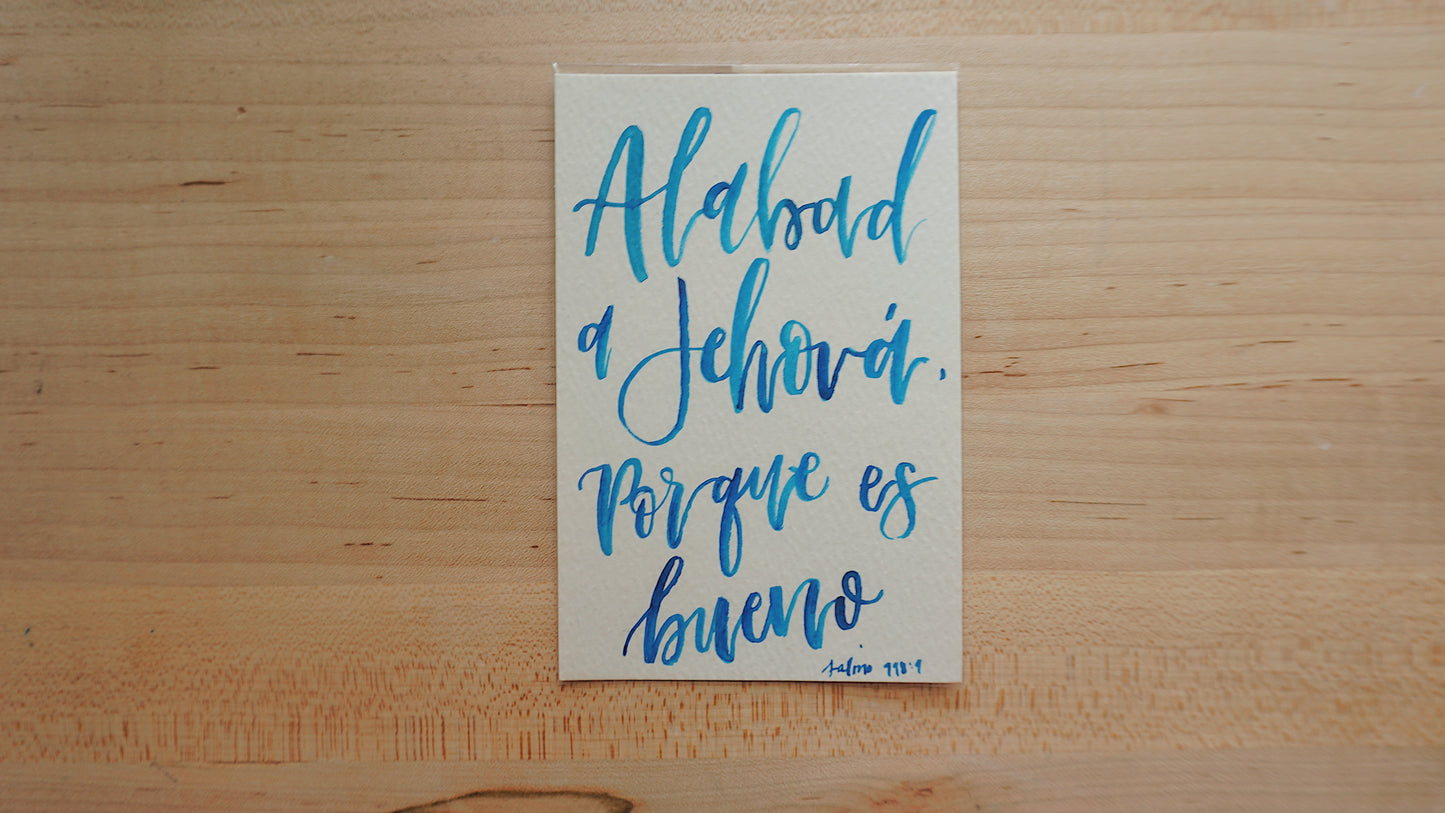 Alabad
a Jehová,
Porque es
bueno
Salmo 118:1